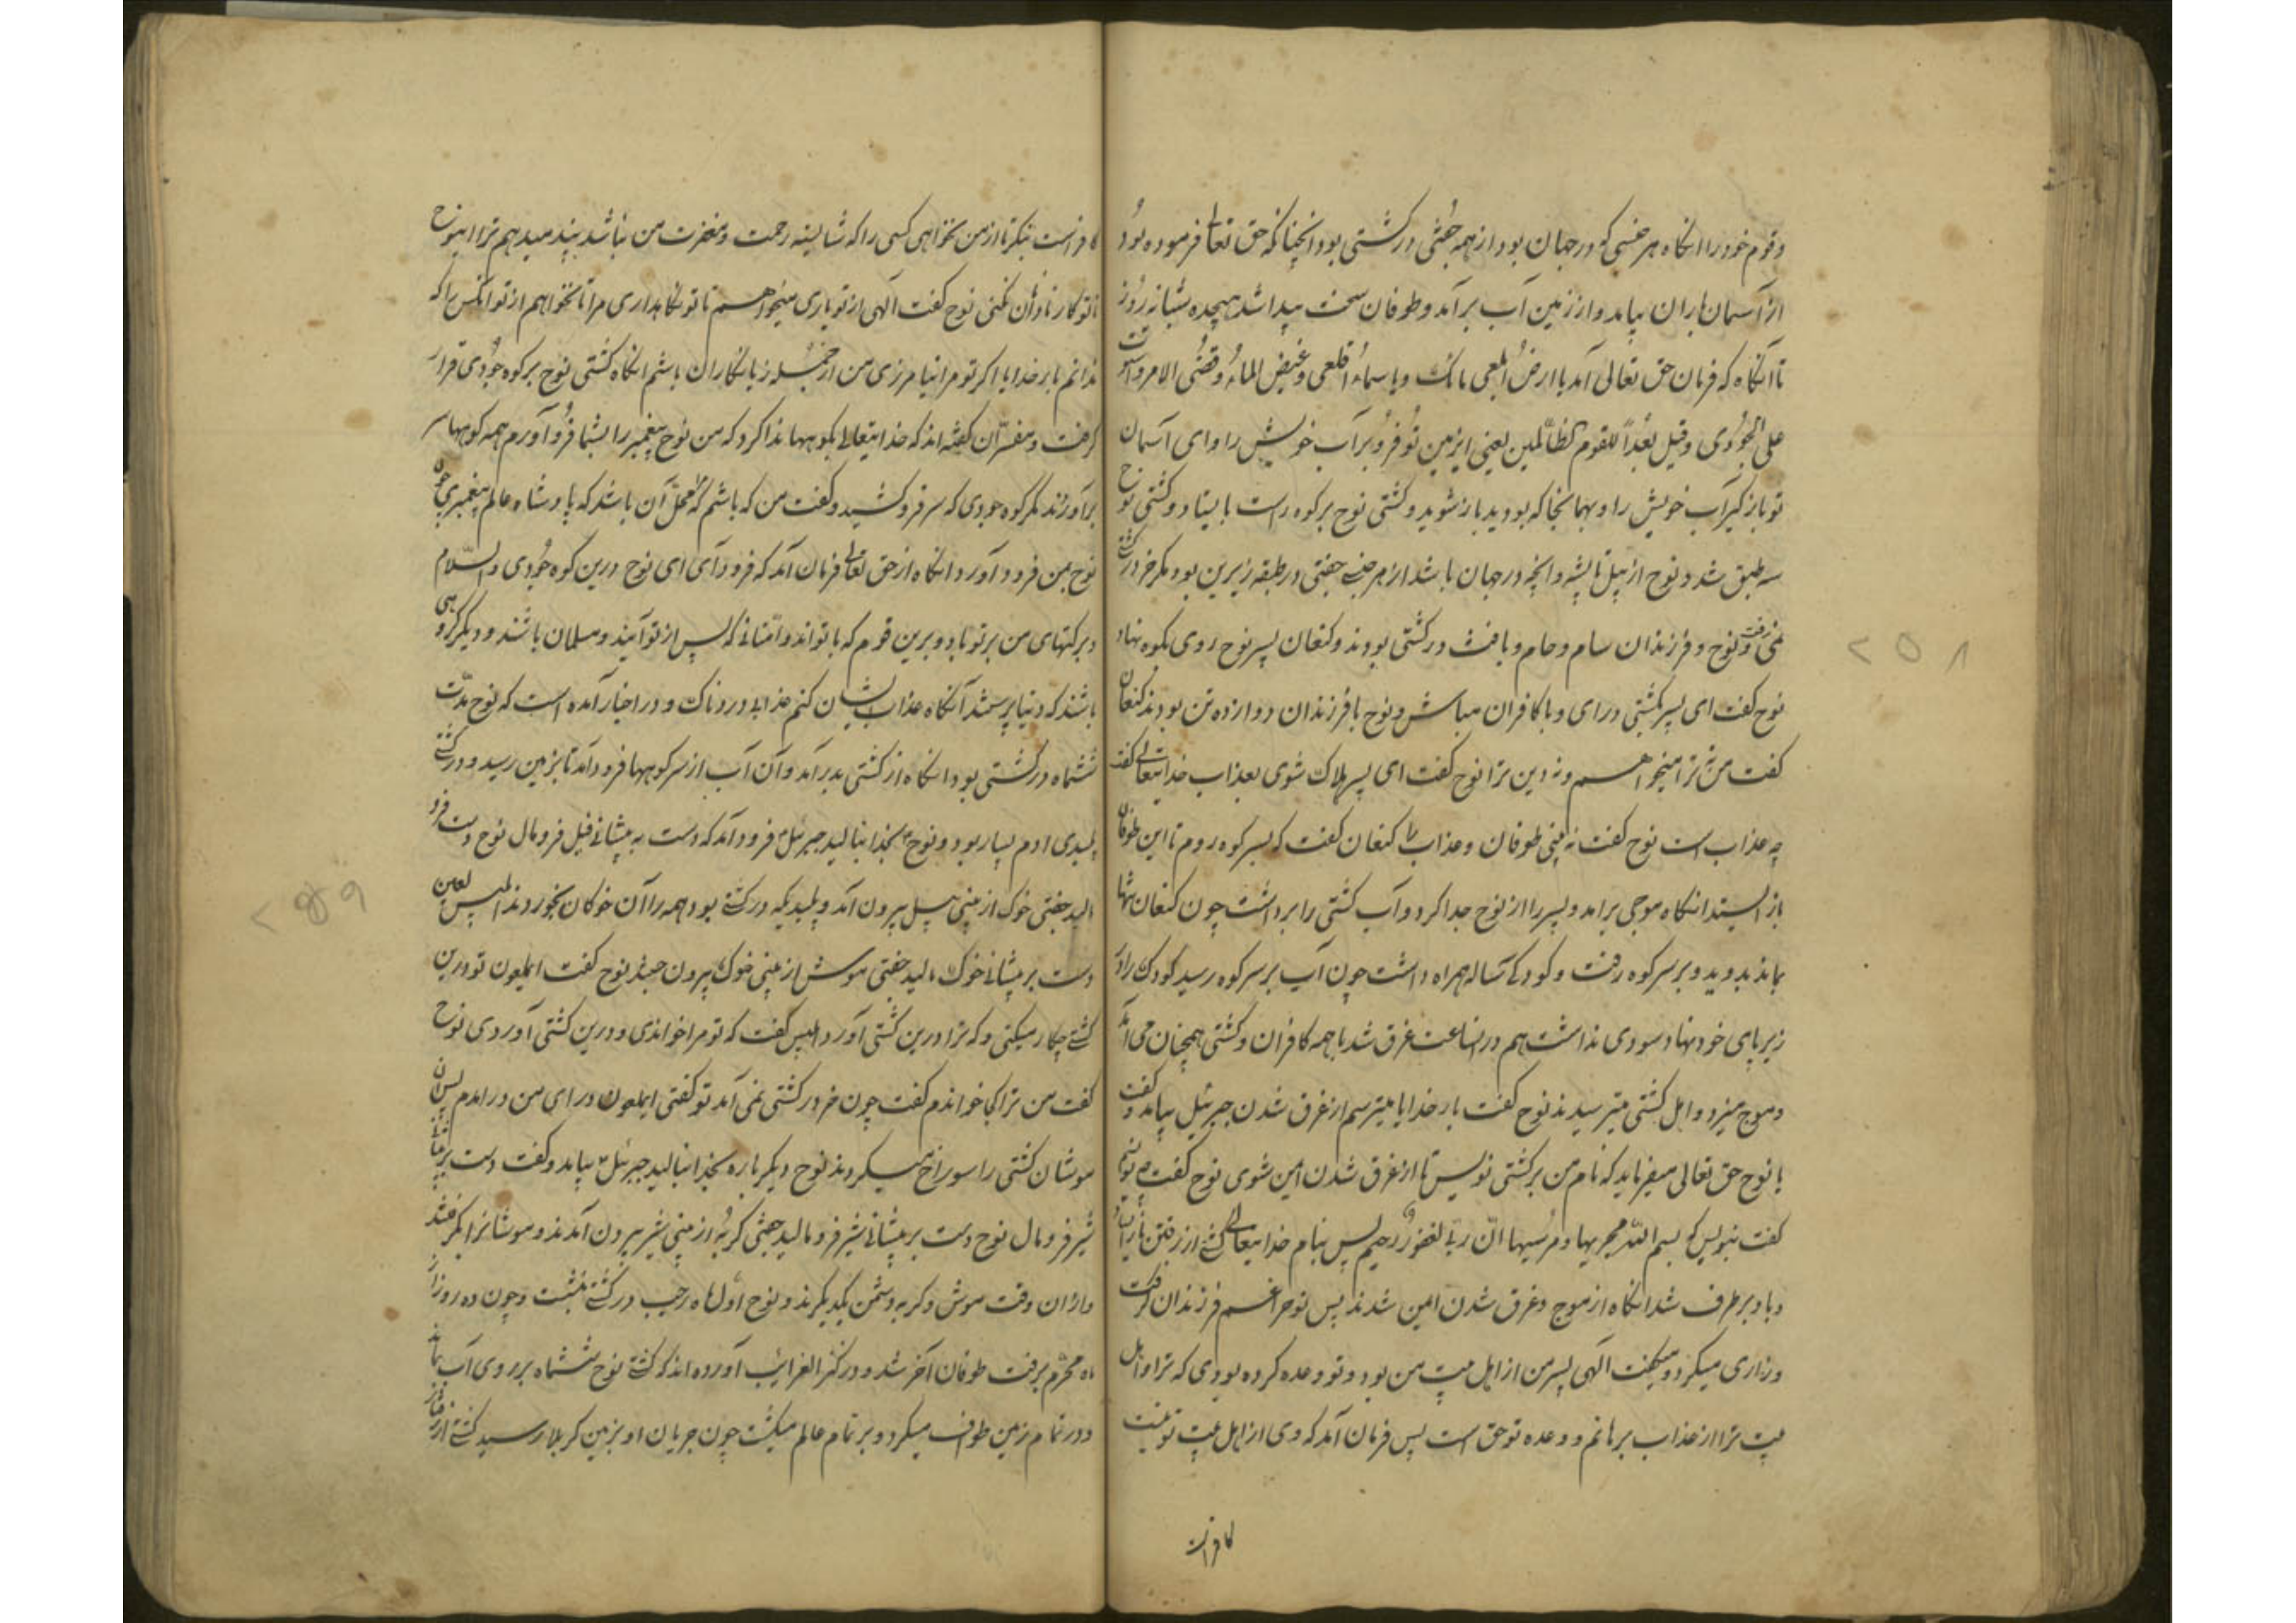 وقوم خود را انگاه هر جنسی که در جهان بود از همه جفتی در کشتی بود انچنانکه حق تعالی فرموده بود
از آسمان باران بیامد و از زمین آب برآمد و طوفان سخت پیدا شد هیجده شبانه روز
تا آنگاه که فرمان حق تعالی آمد یا ارض ابلعی مائک ویا سماء اقلعی وغیض الماء وقضی الامر واستوت
علی الجودی وقیل بعداً للقوم الظالمین یعنی ای زمین تو فرو بر آب خویش را و ای آسمان
تو باز گیر آب خویش را و بهمانجا که بودید باز شوید و کشتی نوح بر کوه راست بایستاد و کشتی نوح
سه طبق شد و نوح از پیل تا پشه و انچه در جهان باشد از هر جنسی جفتی در طبقه زیرین بود مگر خر در کشتی
نمی رفت و نوح و فرزندان سام و حام و یافث در کشتی بودند و کنعان پسر نوح روی بکوه نهاد
نوح گفت ای پسر بکشتی درای و با کافران مباش و نوح با فرزندان دوازده تن بودند کنعان
گفت من نه ترا میخواهم و نه دین ترا نوح گفت ای پسر هلاک شوی بعذاب خدایتعالی گفت
چه عذاب است نوح گفت نه بینی طوفان و عذاب را کنعان گفت که بسر کوه روم تا این طوفان
باز ایستد انگاه موجی برامد و پسر را از نوح جدا کرد و آب کشتی را برداشت چون کنعان تنها
بماند بدوید و بر سر کوه رفت و کودکی ساله همراه داشت چون آب بر سر کوه رسید کودک را در
زیر پای خود نهاد سودی نداشت هم در انساعت غرق شد با همه کافران و کشتی همچنان می آمد
و موج میزد و اهل کشتی میترسیدند نوح گفت بار خدایا میترسم از غرق شدن جبرئیل بیامد و گفت
یا نوح حق تعالی میفرماید که نام من بر کشتی نویس تا از غرق شدن ایمن شوی نوح گفت چه نویسم
گفت بنویس که بسم الله مجریها ومرسیها ان ربی لغفور رحیم پس بنام خدایتعالی کشتی از رفتن باز
و باد بر طرف شد انگاه از موج و غرق شدن ایمن شدند پس نوح را غم فرزندان گرفت
وزاری میکرد و میگفت الهی پسر من از اهل بیت من بود و تو وعده کرده بودی که ترا و اهل
بیت ترا از عذاب برهانم و وعده تو حق است پس فرمان آمد که وی از اهل بیت تو نیست
کافراست
۲۵۸
کافر است بنگر تا از من نخواهی کسی را که شایسته رحمت و مغفرت من نباشد پند میدهم ترا ای نوح
تا تو کار نادان نکنی نوح گفت الهی از تو یاری میخواهم تا تو نگاهداری مرا تا نخواهم از تو انکس را که
ندانم بار خدایا اگر تو مرا نیامرزی من از جمله زیانکاران باشم انگاه کشتی نوح بر کوه جودی قرار
گرفت و مفسران گفته اند که خدایتعالی بکوهها ندا کرد که من نوح پیغمبر را بشما فرود آورم همه کوهها سر
برآوردند مگر کوه جودی که سر فرو کشید و گفت من که باشم که محل آن باشد که پادشاه عالم پیغمبری چون
نوح بمن فرود آورد انگاه از حق تعالی فرمان آمد که فرود آی ای نوح درین کوه جودی والسلام
و برکتهای من بر تو باد و برین قوم که با تواند و امتانی که پس از تو آیند و مسلمان باشند و دیگر گروهی
باشند که دنیا پرستند آنگاه عذاب ایشان کنم عذابی دردناک و در اخبار آمده است که نوح مدت
ششماه در کشتی بود انگاه از کشتی بدر آمد و آن آب از سر کوهها فرود آمد تا بزمین رسید و در کشتی
پلیدی ادم بسیار بود و نوح بخدا بنالید جبرئیل فرود آمد که دست به پیشانی فیل فرو مال نوح دست فرو
مالید جفتی خوک از بینی پیل بیرون آمد و پلیدیکه در کشتی بود همه را آن خوکان بخوردند ابلیس لعین
دست بر پیشانی خوک مالید جفتی موش از بینی خوک بیرون جستند نوح گفت ایملعون تو درین
کشتی چکار میکنی و که ترا درین کشتی آورد ابلیس گفت که تو مرا خواندی و درین کشتی آوردی نوح
گفت من ترا کی خواندم گفت چون خر در کشتی نمی آمد تو گفتی ایملعون درای من درامدم پس آن
موشان کشتی را سوراخ میکردند نوح دیگر باره بخدا بنالید جبرئیل بیامد و گفت دست بر پیشانی
شیر فرو مال نوح دست بر پیشانی شیر فرو مالید جفتی گربه از بینی شیر بیرون آمدند و موشانرا بگرفتند
و از ان وقت موش و گربه دشمن یکدیگرند و نوح اول ماه رجب در کشتی نشست و چون ده روز از
ماه محرم برفت طوفان آخر شد و در کنز الغرائب آورده اند که کشتی نوح ششماه بر روی آب بماند
و در تمام زمین طواف میکرد و بر تمام عالم میگشت چون جریان او بزمین کربلا رسید کشتی از رفتار
۲۵۹